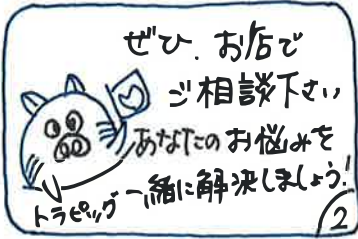 ぜひ、お店で
ご相談下さい
あなたのお悩みを
一緒に解決しましょう!
トラピッグ
2